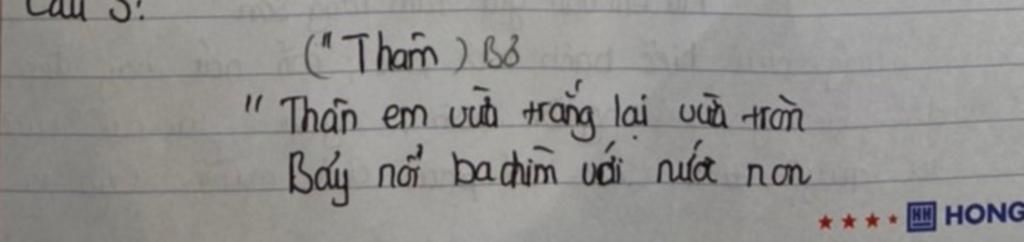 Câu 3:
("Tham̃) Bỏ
"Thân em vừa trắng lại vừa tròn
Bảy nổi ba chìm với nước non
★★★★ HH HONG